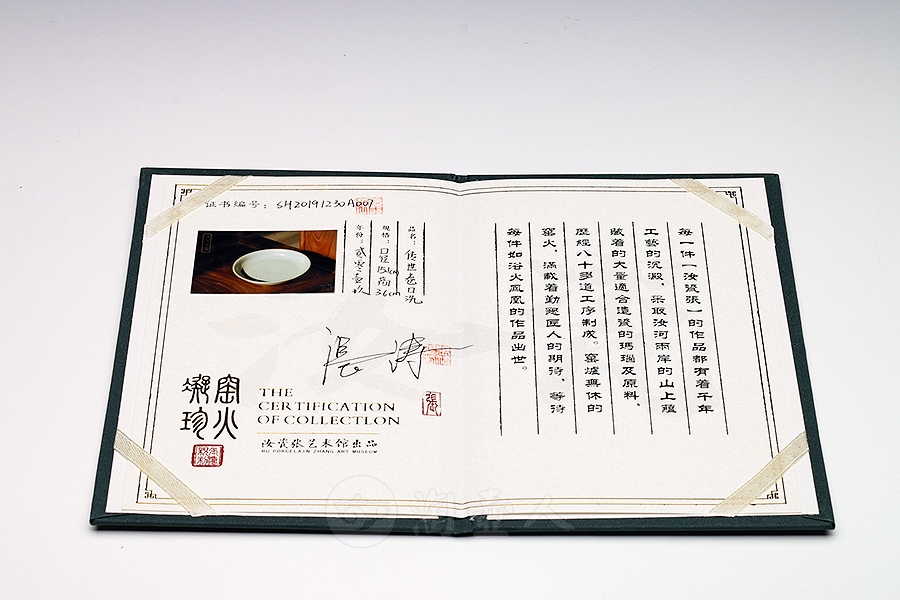 证书编号：SH20191230A007
品名：传世卷口洗
规格：口径15cm高3.6cm
年份：贰零壹玖
张涛
窑火
凝珍
THE
CERTIFICATION
OF COLLECTLON
汝瓷张艺术馆出品
RU PORCELAIN ZHANG ART MUSEUM
每一件一汝瓷張一的作品都有着千年
工藝的沉澱，采取汝河兩岸的山上蕴
藏着的大量適合造瓷的瑪瑙及原料。
歷經八十多道工序制成。窯爐無休的
窯火，滿載着勤懇匠人的期待，等待
每件如浴火鳳凰的作品出世。